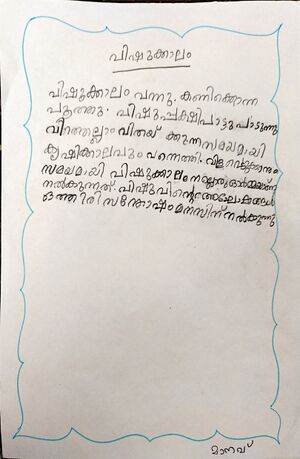 വിഷുക്കാലം
വിഷുക്കാലം വന്നു. കണിക്കൊന്ന
പൂത്തു. വിഷുപ്പക്ഷി പാട്ടു പാടുന്നു
വിത്തെല്ലാം വിതയ് ക്കുന്ന സമയമായി
കൃഷിക്കാലവും വന്നെത്തി. വിള വെടുക്കാനും
സമയമായി വിഷുക്കാലം നല്ലൊരു ഓർമ്മയാണ്
നൽകുന്നത്. വിഷുവിന്റെ ആഘോഷങ്ങൾ
ഒത്തിരി സന്തോഷം മനസിന് നൽകുന്നു
മാനവ്